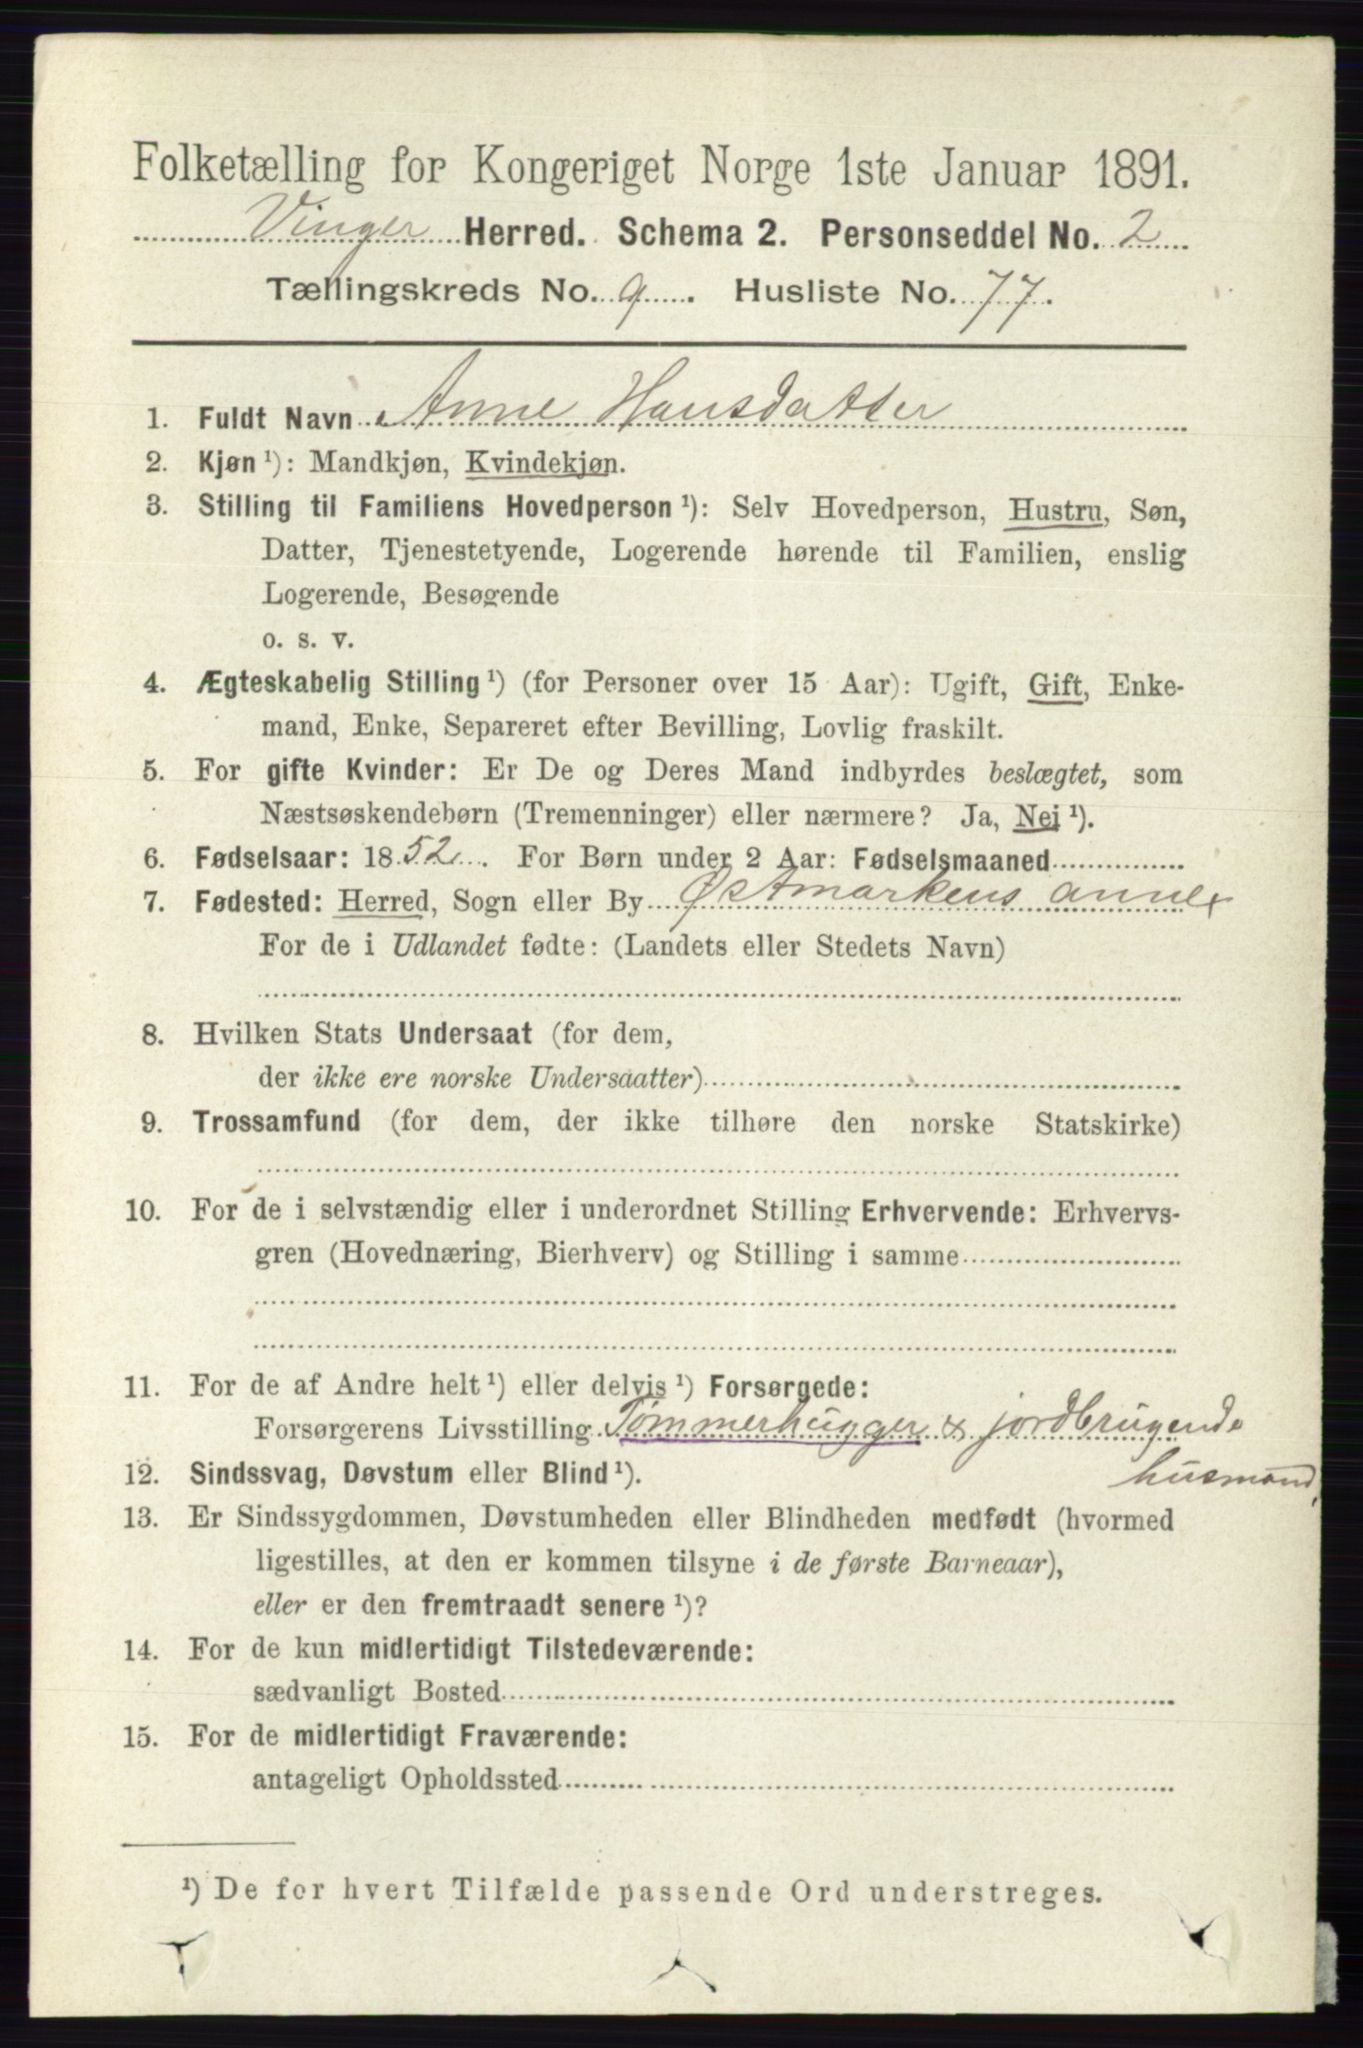 Folketælling for Kongeriget Norge 1ste Januar 1891.
Vinger Herred. Schema 2. Personseddel No. 2
Tællingskreds No. 9. Husliste No. 77.
1. Fuldt Navn Anne Hansdatter
2. Kjøn ¹): Mandkjøn, Kvindekjøn.
3. Stilling til Familiens Hovedperson ¹): Selv Hovedperson, Hustru, Søn,
Datter, Tjenestetyende, Logerende hørende til Familien, enslig
Logerende, Besøgende
o. s. v.
4. Ægteskabelig Stilling ¹) (for Personer over 15 Aar): Ugift, Gift, Enke-
mand, Enke, Separeret efter Bevilling, Lovlig fraskilt.
5. For gifte Kvinder: Er De og Deres Mand indbyrdes beslægtet, som
Næstsøskendebørn (Tremenninger) eller nærmere? Ja, Nei ¹).
6. Fødselsaar: 1852. For Børn under 2 Aar: Fødselsmaaned
7. Fødested: Herred, Sogn eller By Østmarkens annex
For de i Udlandet fødte: (Landets eller Stedets Navn)
8. Hvilken Stats Undersaat (for dem,
der ikke ere norske Undersaatter)
9. Trossamfund (for dem, der ikke tilhøre den norske Statskirke)
10. For de i selvstændig eller i underordnet Stilling Erhvervende: Erhvervs-
gren (Hovednæring, Bierhverv) og Stilling i samme
11. For de af Andre helt ¹) eller delvis ¹) Forsørgede:
Forsørgerens Livsstilling Tømmerhugger & jordbrugende
husmand,
12. Sindssvag, Døvstum eller Blind ¹).
13. Er Sindssygdommen, Døvstumheden eller Blindheden medfødt (hvormed
ligestilles, at den er kommen tilsyne i de første Barneaar),
eller er den fremtraadt senere ¹)?
14. For de kun midlertidigt Tilstedeværende:
sædvanligt Bosted
15. For de midlertidigt Fraværende:
antageligt Opholdssted
¹) De for hvert Tilfælde passende Ord understreges.